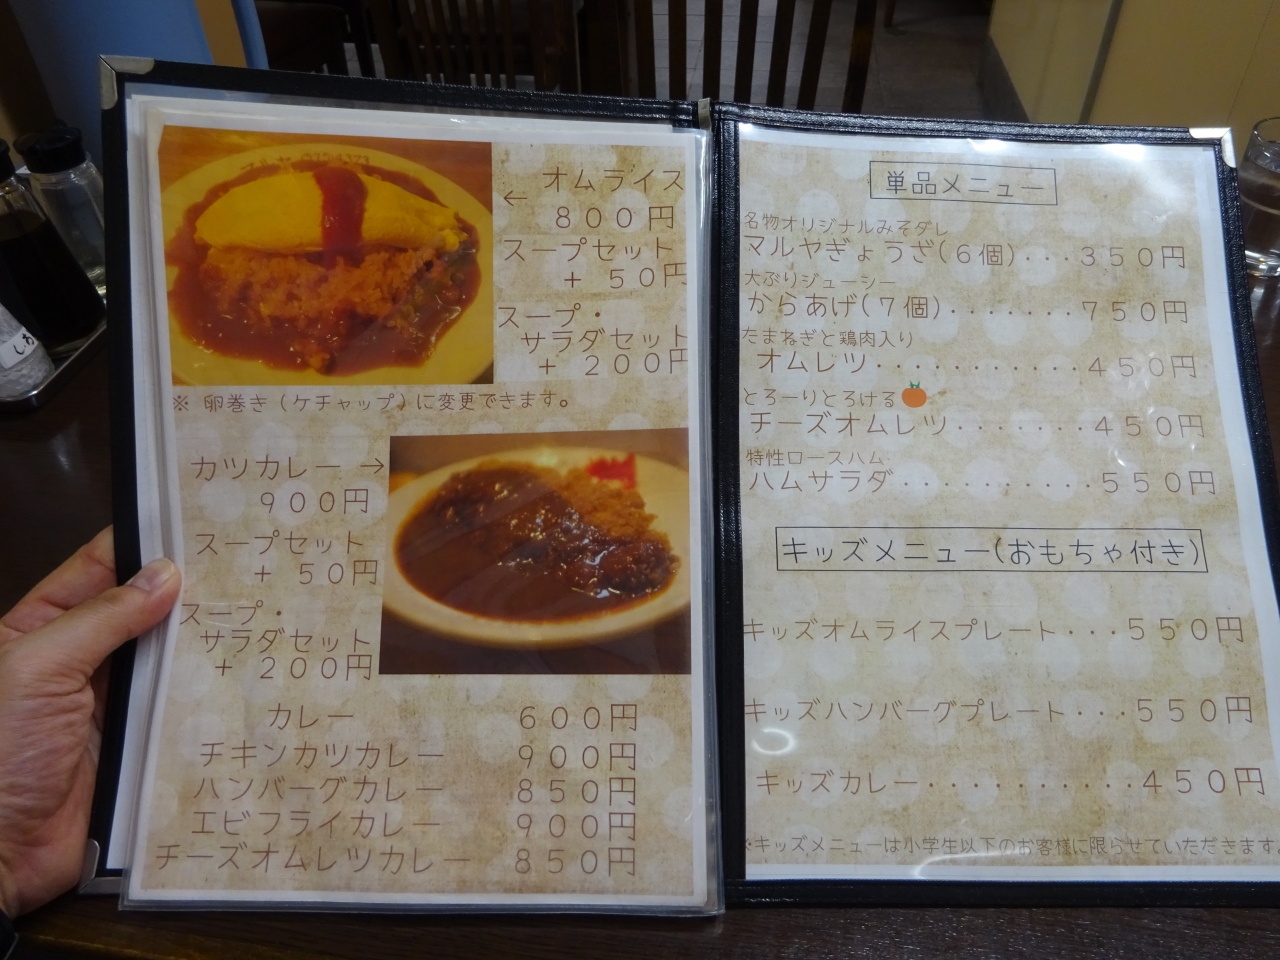 オムライス
← ８００円
スープセット
＋ ５０円
スープ・
サラダセット
＋ ２００円
※ 卵巻き（ケチャップ）に変更できます。
カツカレー →
９００円
スープセット
＋ ５０円
スープ・
サラダセット
＋ ２００円
カレー ６００円
チキンカツカレー ９００円
ハンバーグカレー ８５０円
エビフライカレー ９００円
チーズオムレツカレー ８５０円
単品メニュー
名物オリジナルみそダレ
マルヤぎょうざ（６個）・・・３５０円
大ぶりジューシー
からあげ（７個）・・・・・・・７５０円
たまねぎと鶏肉入り
オムレツ・・・・・・・・・・・４５０円
とろーりとろける
チーズオムレツ・・・・・・・４５０円
特性ロースハム
ハムサラダ・・・・・・・・・・５５０円
キッズメニュー（おもちゃ付き）
キッズオムライスプレート・・・５５０円
キッズハンバーグプレート・・・５５０円
キッズカレー・・・・・・・・・・４５０円
※キッズメニューは小学生以下のお客様に限らせていただきます。